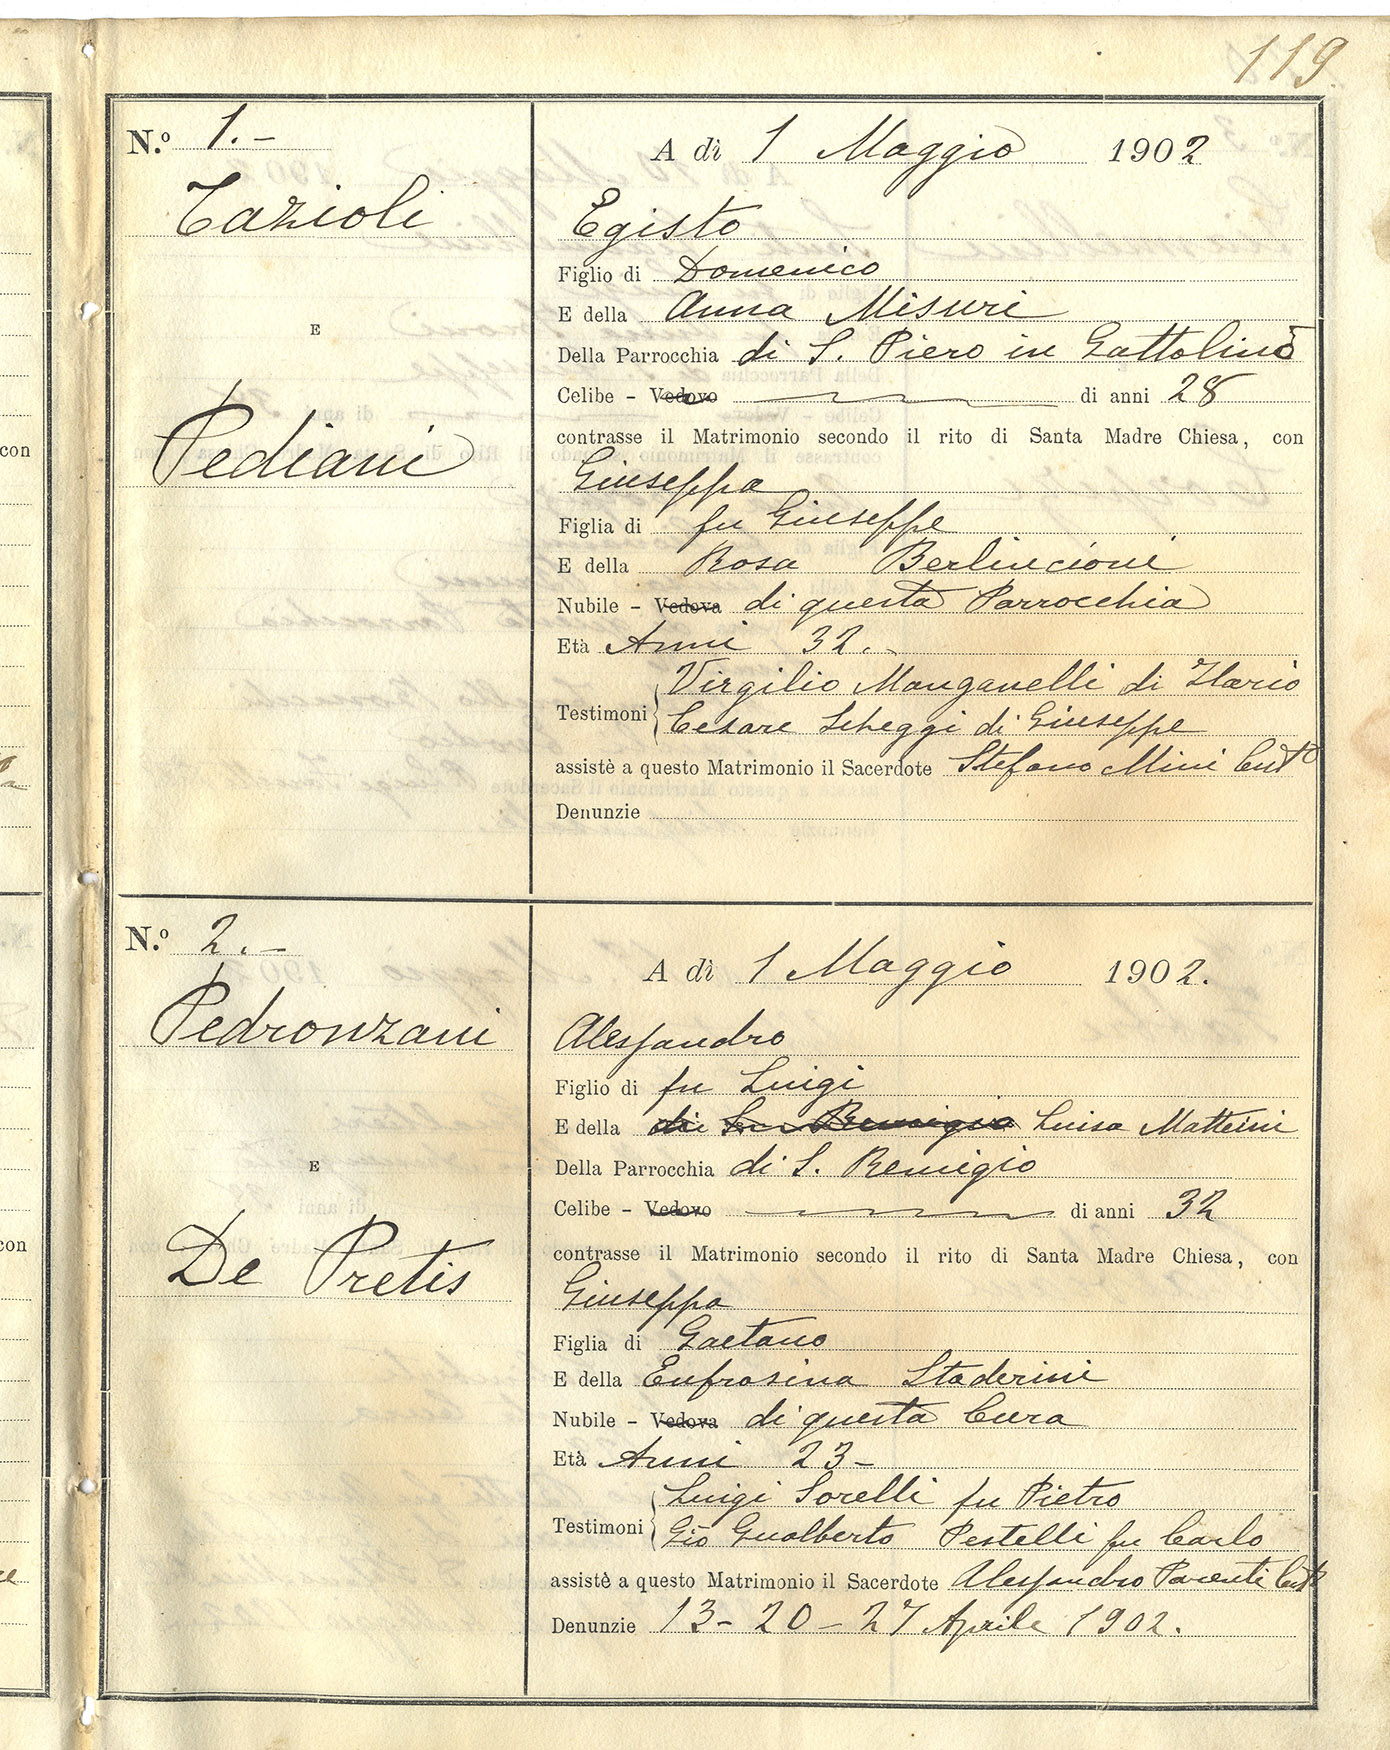 119
N.º 1.-
A dì 1 Maggio 1902
Tazioli
Egisto
Figlio di Domenico
E della Anna Misuri
E
Della Parrocchia di S. Piero in Gattolino
Celibe - Vedovo di anni 28
contrasse il Matrimonio secondo il rito di Santa Madre Chiesa, con
Pediani
Giuseppa
Figlia di fu Giuseppe
E della Rosa Berlincioni
Nubile - Vedova di questa Parrocchia
Età Anni 32.-
Testimoni Virgilio Manganelli di Ilario
Cesare Scheggi di Giuseppe
assistè a questo Matrimonio il Sacerdote Stefano Mini Curto
Denunzie
N.º 2.-
A dì 1 Maggio 1902.
Pedronzani
Alessandro
Figlio di fu Luigi
E della di San Remigio Luisa Matteini
E
Della Parrocchia di S. Remigio
Celibe - Vedovo di anni 32
contrasse il Matrimonio secondo il rito di Santa Madre Chiesa, con
De Pretis
Giuseppa
Figlia di Gaetano
E della Eufrosina Staderini
Nubile - Vedova di questa Cura
Età Anni 23-
Testimoni Luigi Sorelli fu Pietro
Gio Gualberto Pestelli fu Carlo
assistè a questo Matrimonio il Sacerdote Alessandro Parenti
Denunzie 13-20-27 Aprile 1902.
con
con